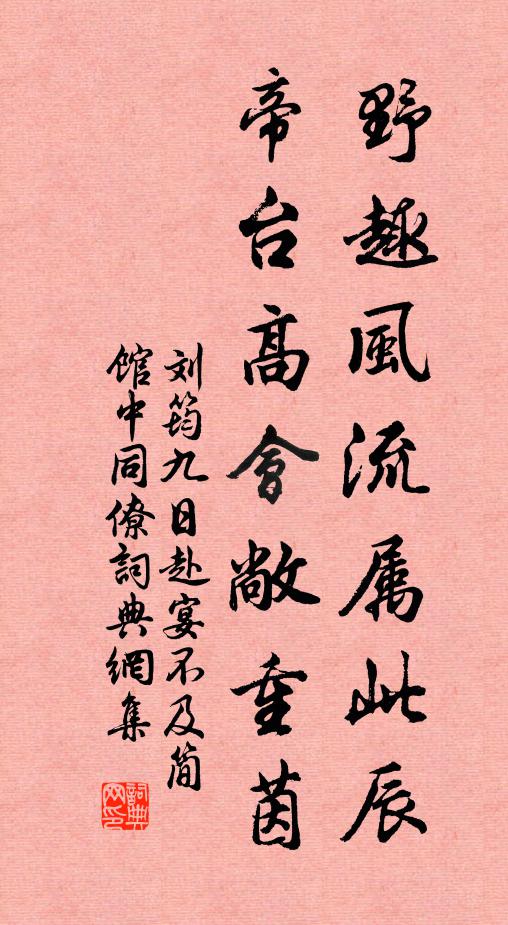 野趣風流属此辰
帝台高會敞重茵
刘筠九日赴宴不及简
馆中同僚詞典網集
詞典網印